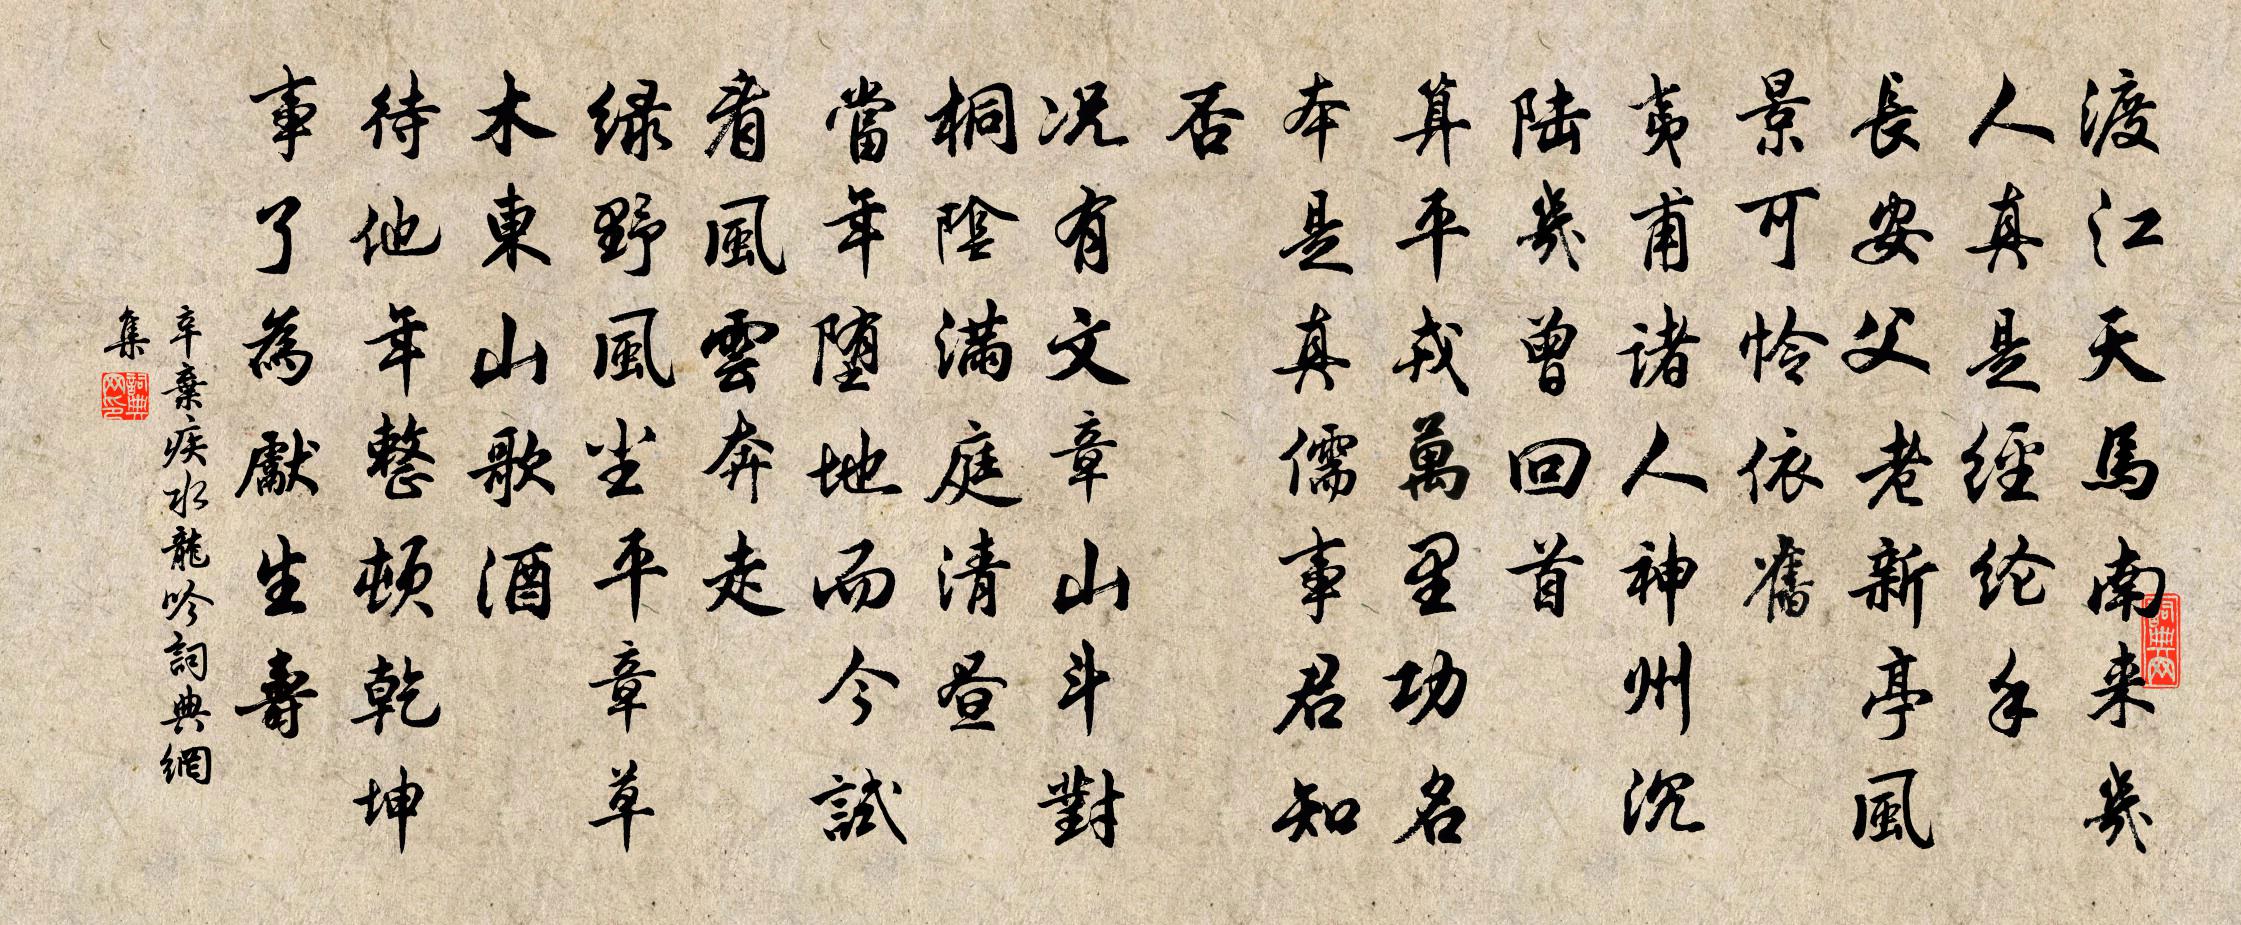 渡江天馬南来幾
人真是經纶手
長安父老新亭風
景可怜依舊
夷甫諸人神州沉
陆幾曾回首
算平戎萬里功名
本是真儒事君知
否
况有文章山斗對
桐陰滿庭清昼
當年堕地而今試
看風雲奔走
绿野風尘平章草
木東山歌酒
待他年整頓乾坤
事了為獻生壽
辛棄疾水龍吟詞典網
集
詞典網
詞典網印